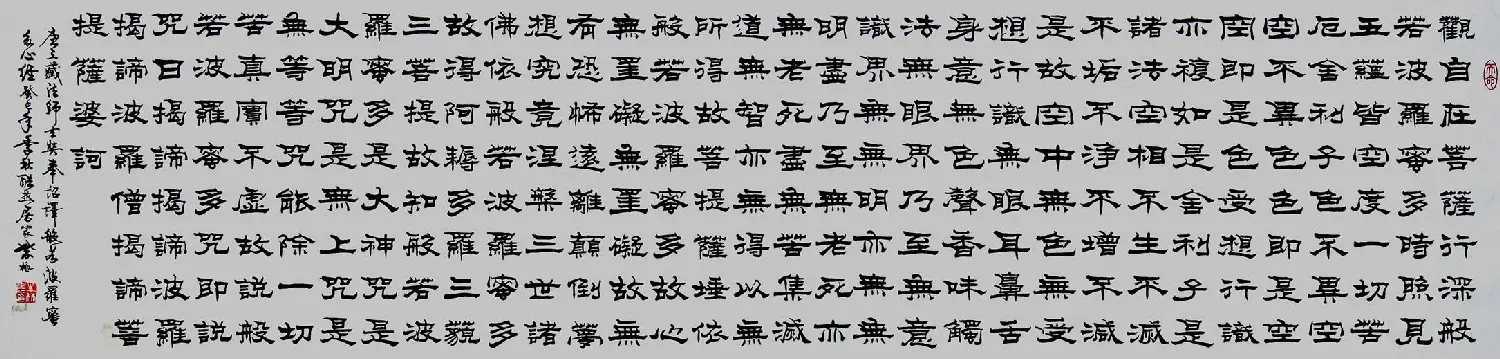 觀自在菩薩行深般
若波羅蜜多時照見
五蘊皆空度一切苦
厄舍利子色不異空
空不異色色即是空
空即是色受想行識
亦複如是舍利子是
諸法空相不生不滅
不垢不淨不增不減
是故空中無色無受
想行識無眼耳鼻舌
身意無色聲香味觸
法無眼界乃至無意
識界無無明亦無無
明盡乃至無老死亦
無老死盡無苦集滅
道無智亦無得以無
所得故菩提薩埵依
般若波羅蜜多故心
無罣礙無罣礙故無
有恐怖遠離顛倒夢
想究竟涅槃三世諸
佛依般若波羅蜜多
故得阿耨多羅三藐
三菩提故知般若波
羅蜜多是大神咒是
大明咒是無上咒是
無等等咒能除一切
苦真實不虛故說般
若波羅蜜多咒即說
咒曰揭諦揭諦波羅
揭諦波羅僧揭諦菩
提薩婆訶
唐三藏法師玄奘奉詔譯般若波羅蜜
多心經癸巳年季秋